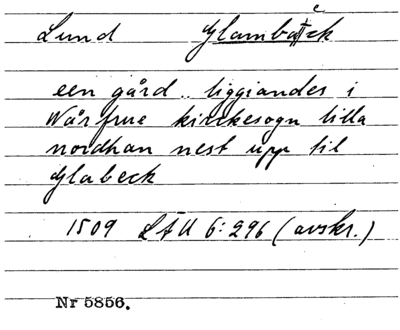 Lund Glambäck
een gård .. liggiandes i
Wårfrue kirckesogn lilla
nordhan nest upp til
Glabeck
1509 LÄU 6:296 (avskr.)
Nr 5856.